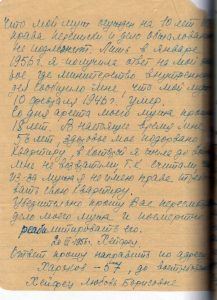 Что мой муж осужден на 10 лет без
права переписки и дело обжалованию
не подлежит. Лишь в январе
1956 г. я получила ответ на мой
где министерство внутренних
дел сообщило мне, что мой муж
10 февраля 1946 г. умер.
Со дня ареста моего мужа прошло
18 лет. В настоящее время мне
58 лет, здоровье мое подорвано
квартиру, в которой я жила до
мне не возвратили т.к. считали, что
из-за мужа я не имею права
вать свою квартиру.
Убедительно прошу Вас пересмотреть
дело моего мужа и посмертно
реабилитировать его.
Хейфец.
Ответ прошу направить по адресу
Харьков - 57, до востребования
Хейфец Любовь Борисовне